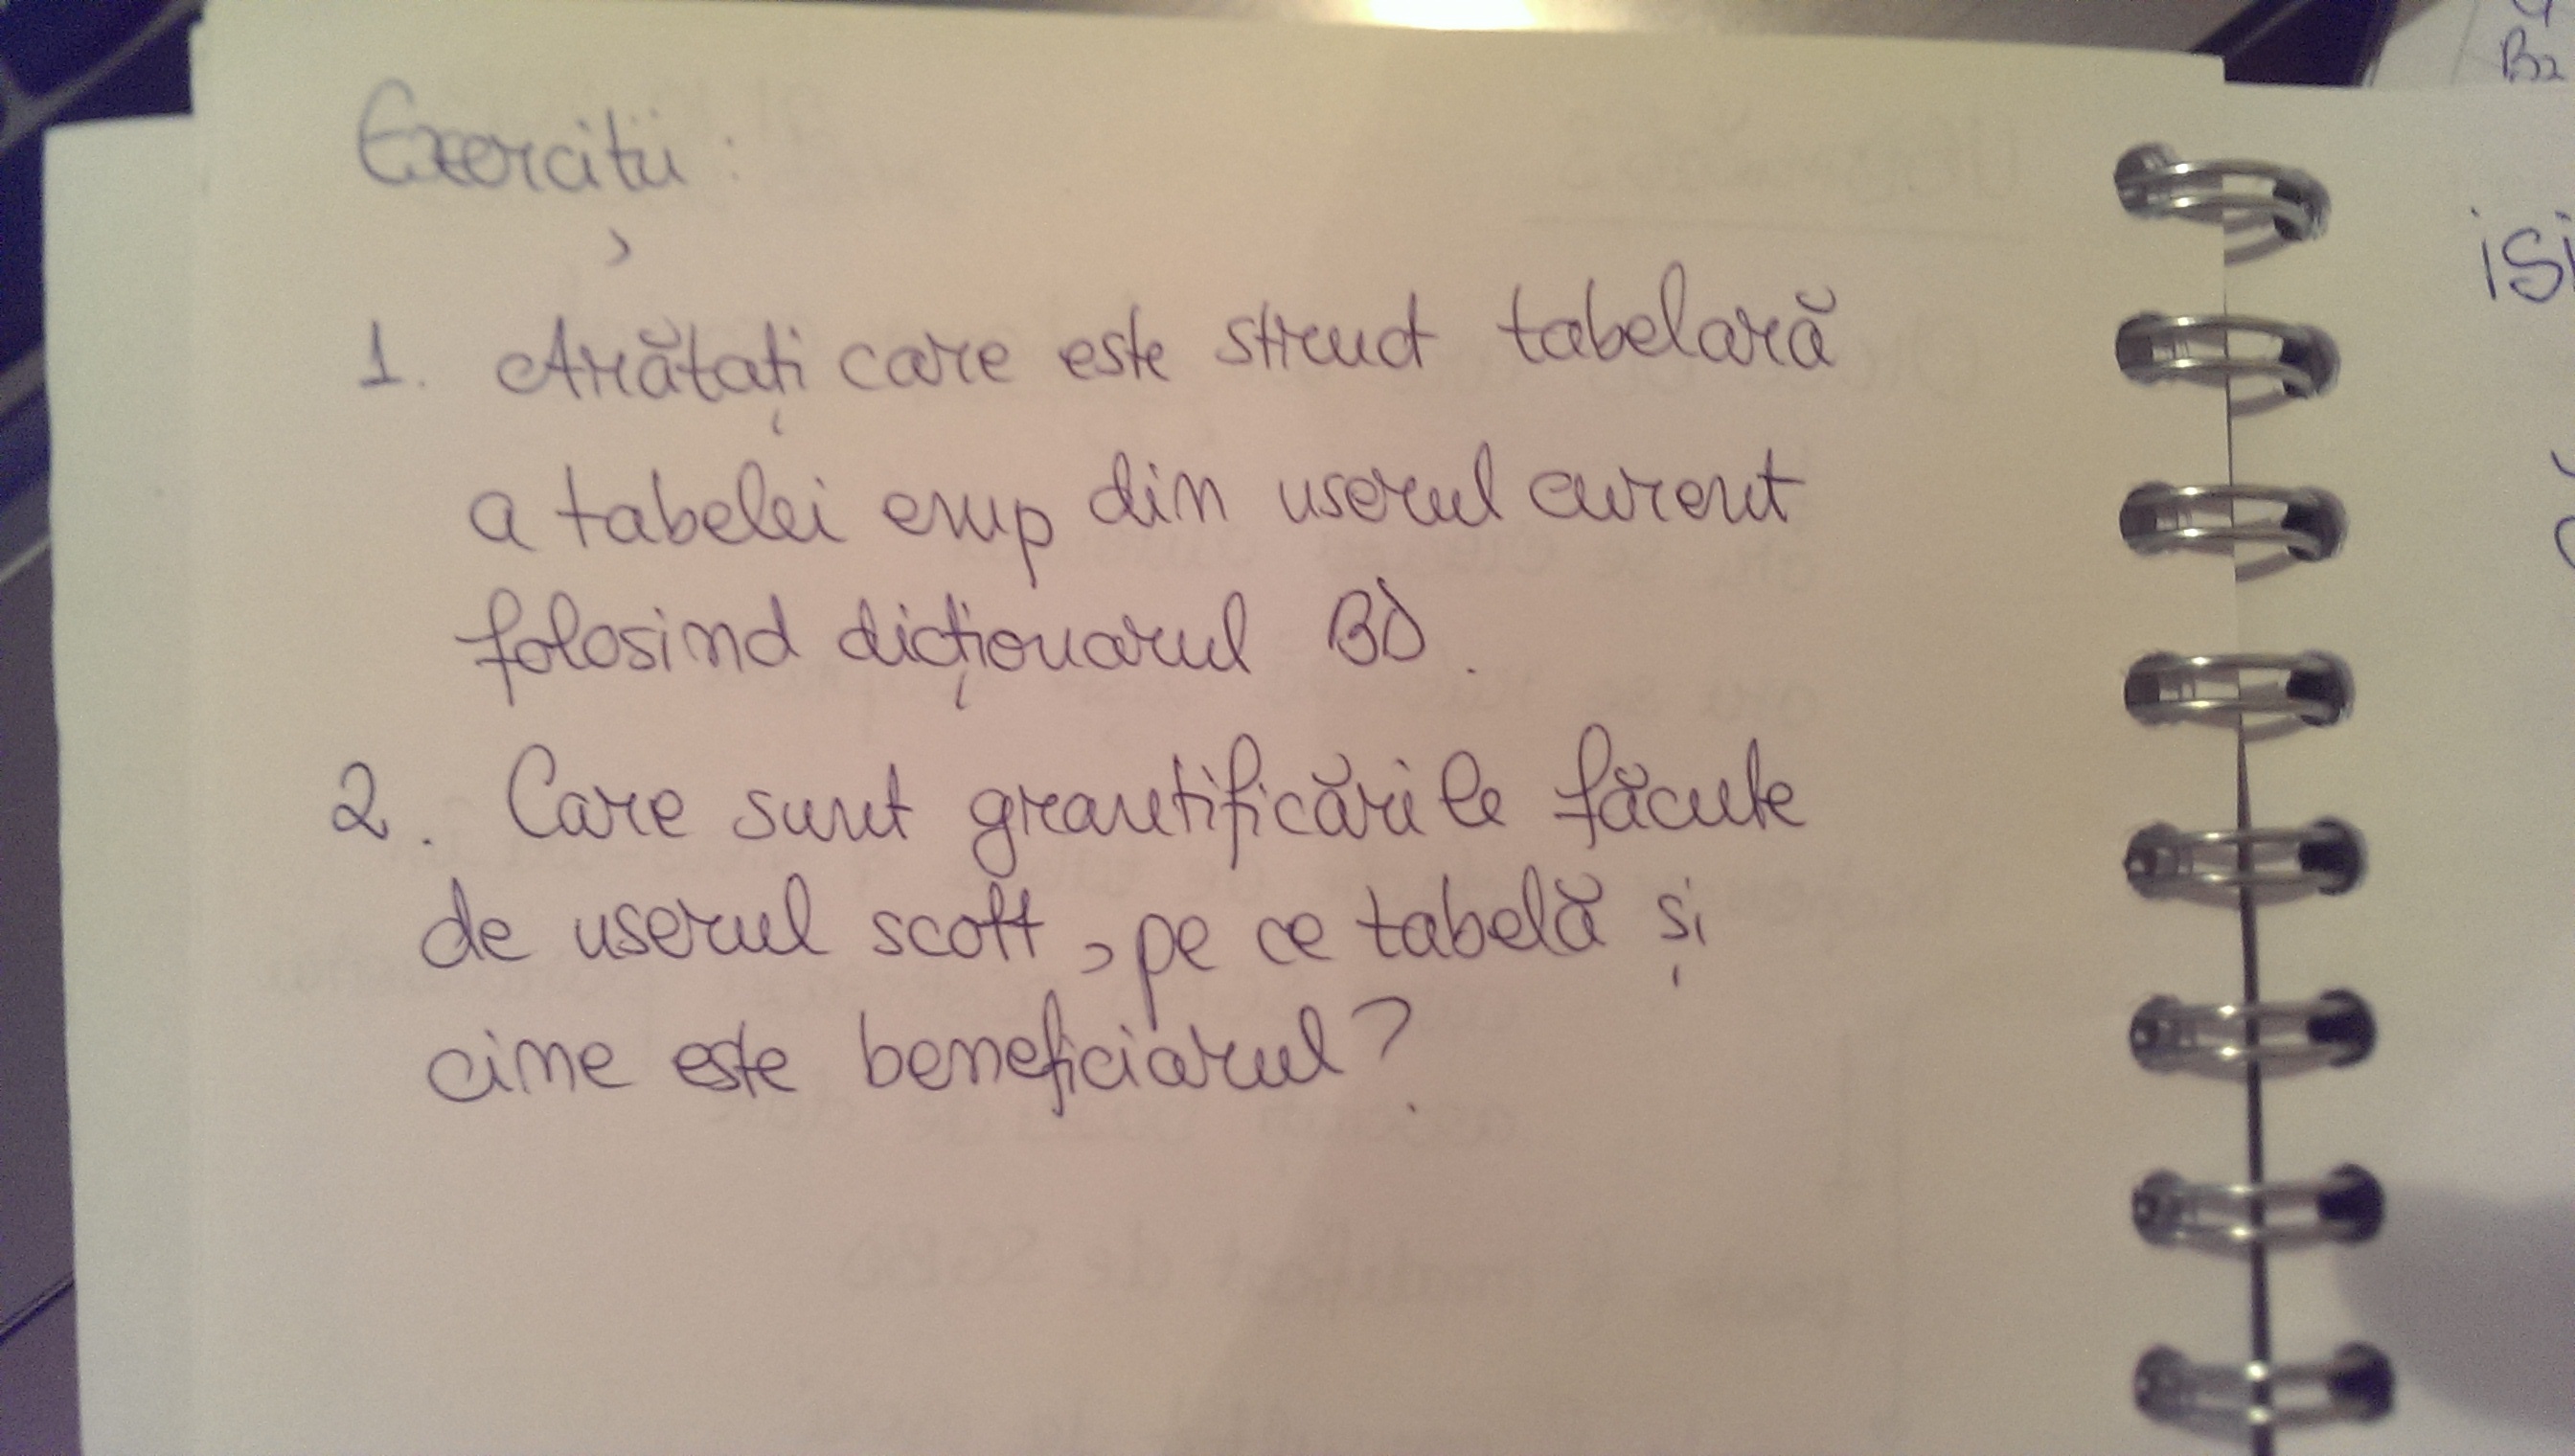 Exerciții :
1. Arătați care este struct tabelară
a tabelei emp din userul curent
folosind dicționarul BD.
2. Care sunt grantificările făcute
de userul scott, pe ce tabelă și
cine este beneficiarul?
B2
isi